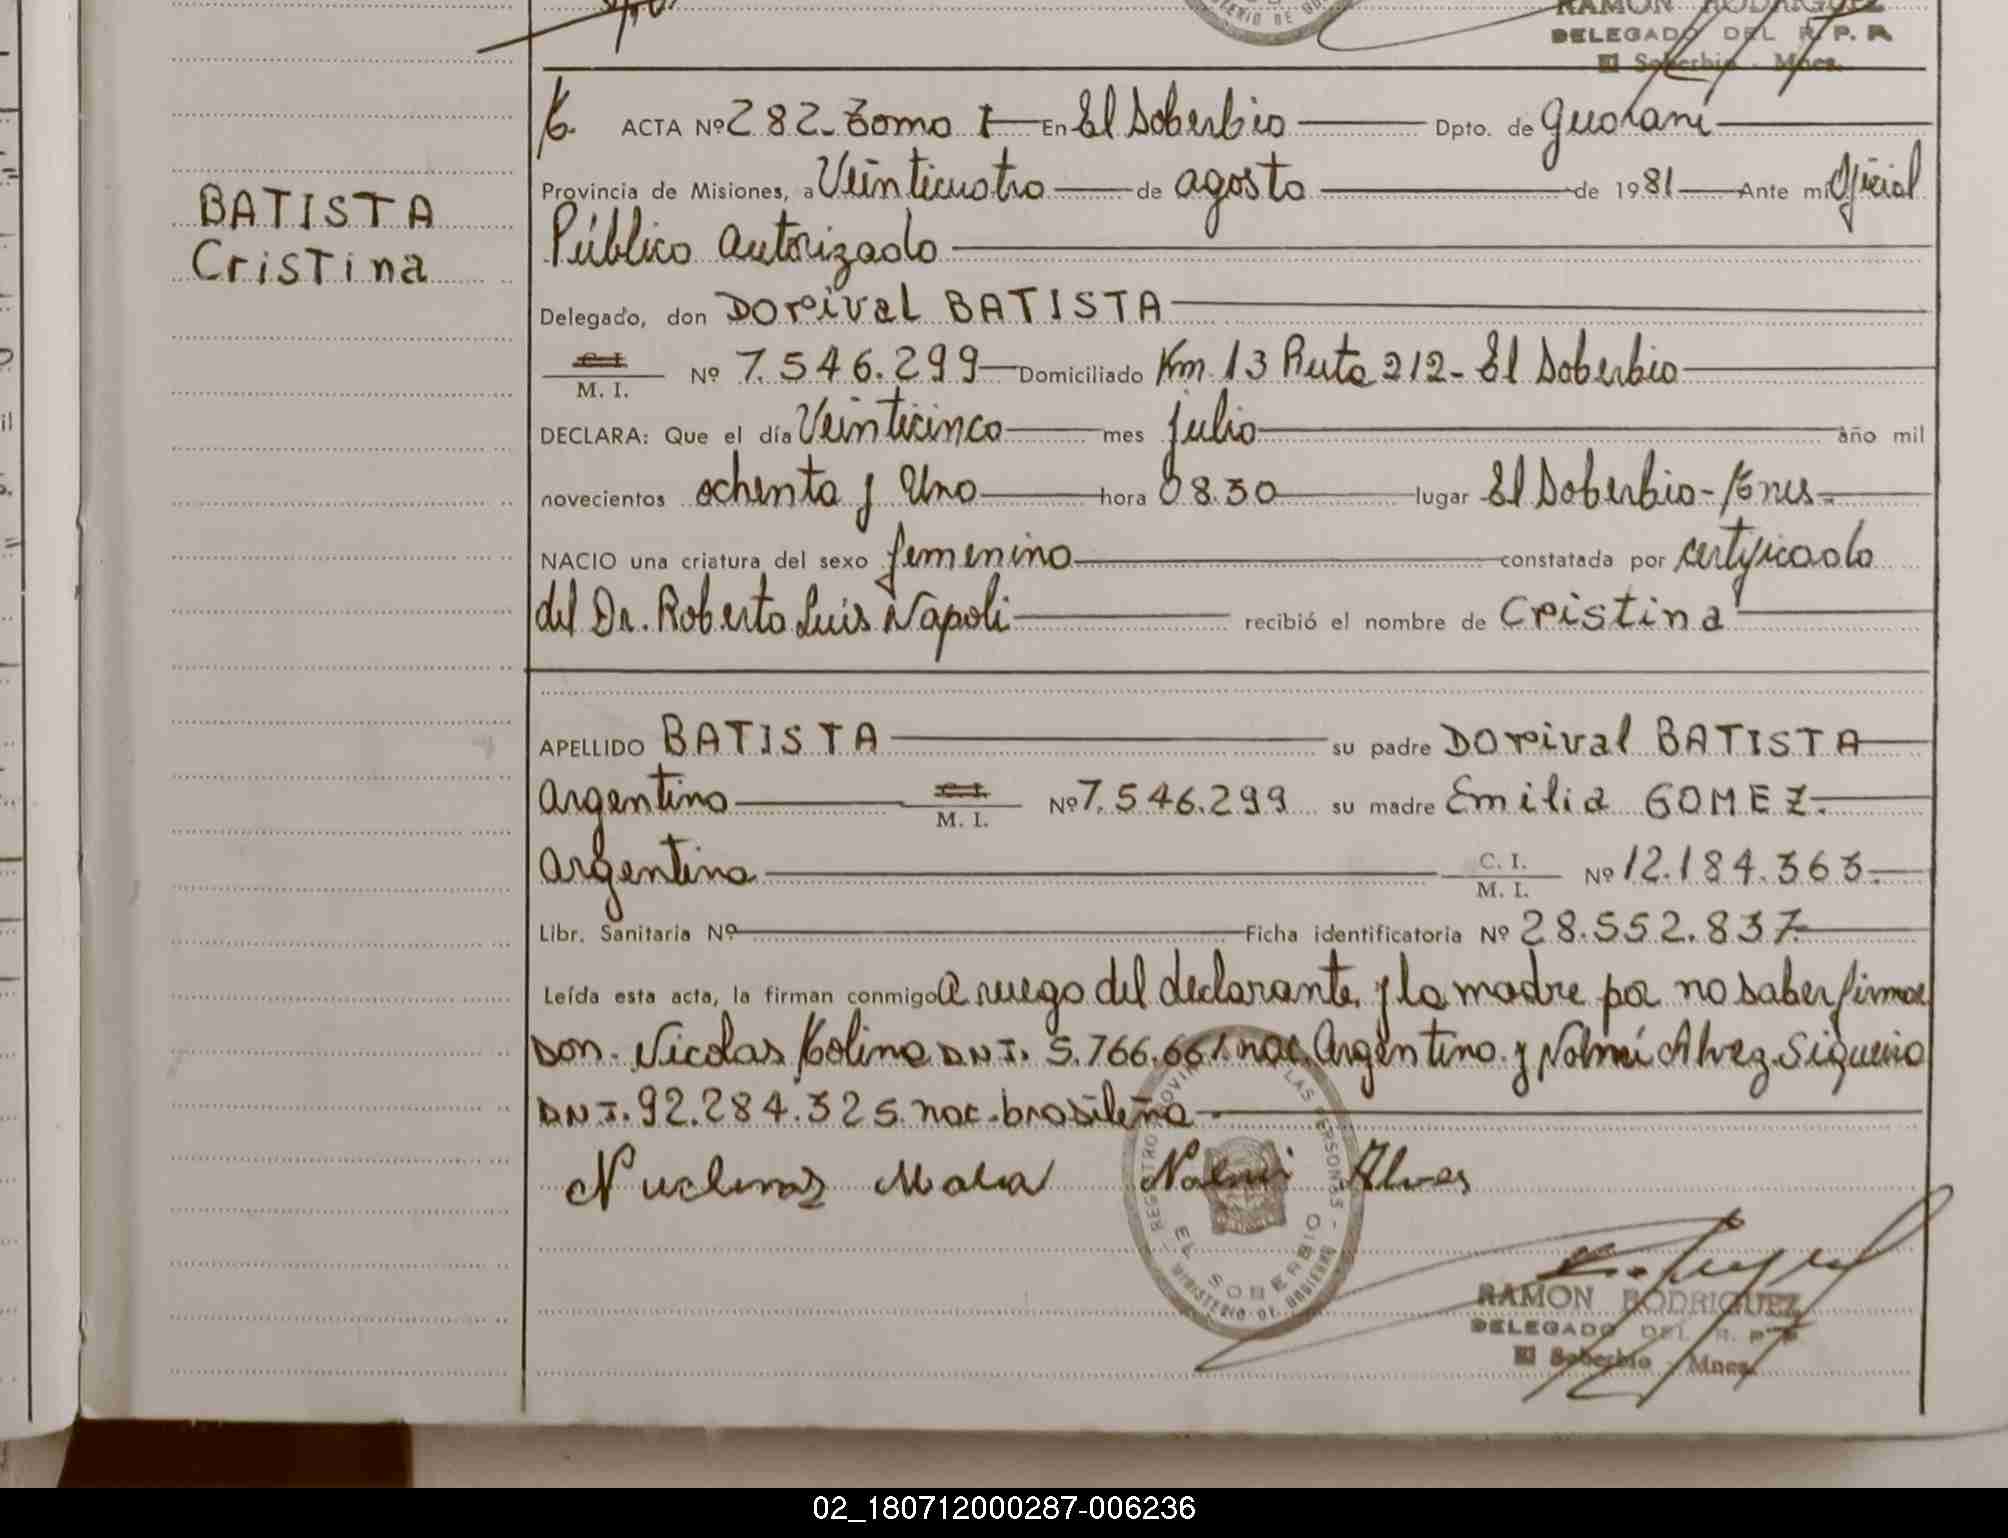 RAMON RODRIGUEZ
DELEGADO DEL R. P. P.
El Soberbio - Mnes.
ACTA Nº 282 - Tomo I En El Soberbio Dpto. de Guaraní
BATISTA
Cristina
Provincia de Misiones, a Veinticuatro de agosto de 1981 Ante mi Oficial
Público Autorizado
Delegado, don Dorival BATISTA
C. I.
M. I. Nº 7.546.299 Domiciliado Km 13 Ruta 212 - El Soberbio
DECLARA: Que el día Veinticinco mes julio año mil
novecientos ochenta y Uno hora 08.30 lugar El Soberbio - Mnes -
NACIO una criatura del sexo femenino constatada por certificado
del Dr. Roberto Luis Napoli recibió el nombre de Cristina
APELLIDO BATISTA su padre Dorival BATISTA
Argentino C. I.
M. I. Nº 7.546.299 su madre Emilia GOMEZ.
Argentina C. I.
M. I. Nº 12.184.363.
Libr. Sanitaria Nº Ficha identificatoria Nº 28.552.837.
Leída esta acta, la firman conmigo A ruego del declarante y la madre por no saber firmar
Don. Nicolas Molina D.N.I. 5.766.661. nac. Argentino y Noemí Alvez Siqueira
D.N.I. 92.284.325. nac. brasileña.
Noemi Alves
REGISTRO PROVINCIAL DE LAS PERSONAS
EL SOBERBIO
MINISTERIO DE GOBIERNO
RAMON RODRIGUEZ
DELEGADO DEL R. P. P.
El Soberbio - Mnes.
02_180712000287-006236